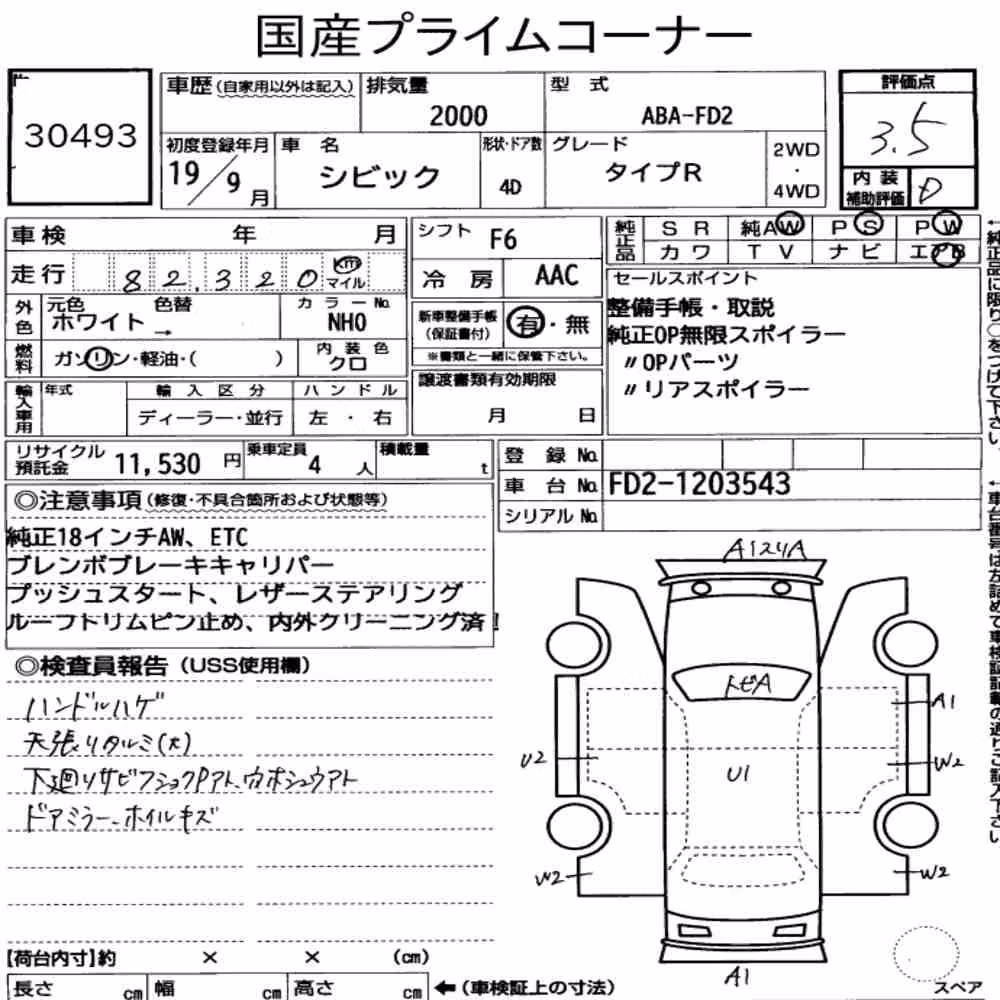 国産プライムコーナー
30493
車歴(自家用以外は記入) 排気量 2000 型式 ABA-FD2
初度登録年月 19/9月 車名 シビック 形状・ドア数 4D グレード タイプR 2WD・4WD
評価点 3.5
内装補助評価 D
車検 年 月
走行 82,320 km マイル
外色 元色 ホワイト 色替 → カラーNo. NHO
燃料 ガソリン・軽油・( ) 内装色 クロ
輸入車用 年式 輸入区分 ディーラー・並行 ハンドル 左・右
シフト F6
冷房 AAC
新車整備手帳(保証書付) 有・無
※書類と一緒に保管下さい。
譲渡書類有効期限
月 日
純正品 SR 純AW PS PW
カワ TV ナビ エアB
セールスポイント
整備手帳・取説
純正OP無限スポイラー
〃OPパーツ
〃リアスポイラー
←純正品に限り○をつけて下さい。
リサイクル預託金 11,530円 乗車定員 4人 積載量 t
登録No.
車台No. FD2-1203543
シリアルNo.
←車台番号は左詰めで車検証記載の通りご記入下さい
◎注意事項(修復・不具合箇所および状態等)
純正18インチAW、ETC
ブレンボブレーキキャリパー
プッシュスタート、レザーステアリング
ルーフトリムピン止め、内外クリーニング済!
◎検査員報告(USS使用欄)
ハンドルハゲ
天張りタルミ(大)
下廻りサビフショクPアト、カホシュウアト
ドアミラー、ホイルキズ
A1スリA
トビA
A1
U2
U1
W2
W2
W2
A1
【荷台内寸】約 × × (cm)
長さ cm 幅 cm 高さ cm ←(車検証上の寸法)
スペア